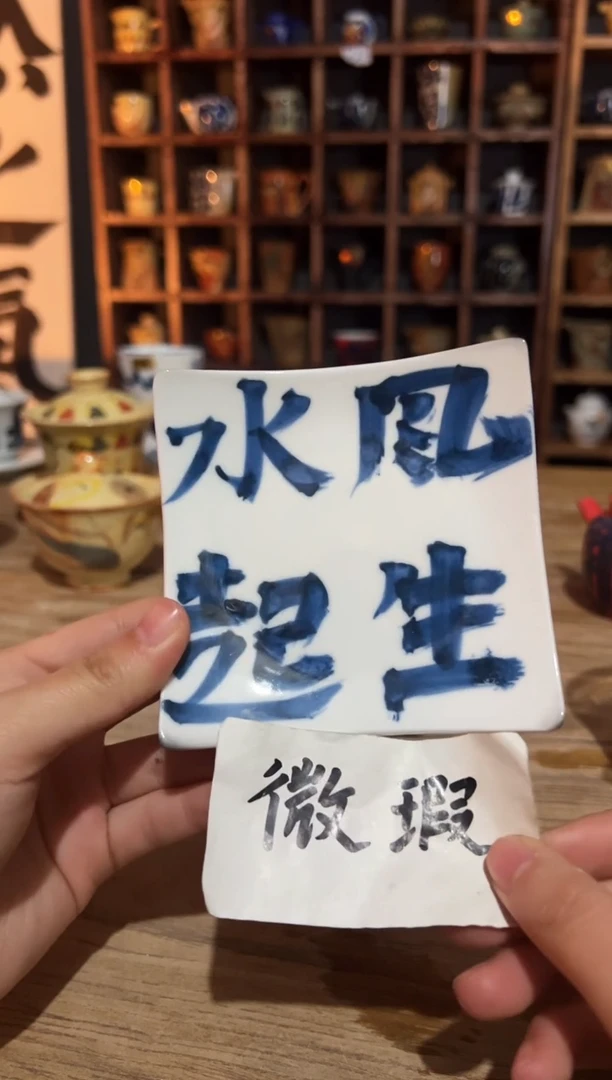 風生
水起
微瑕